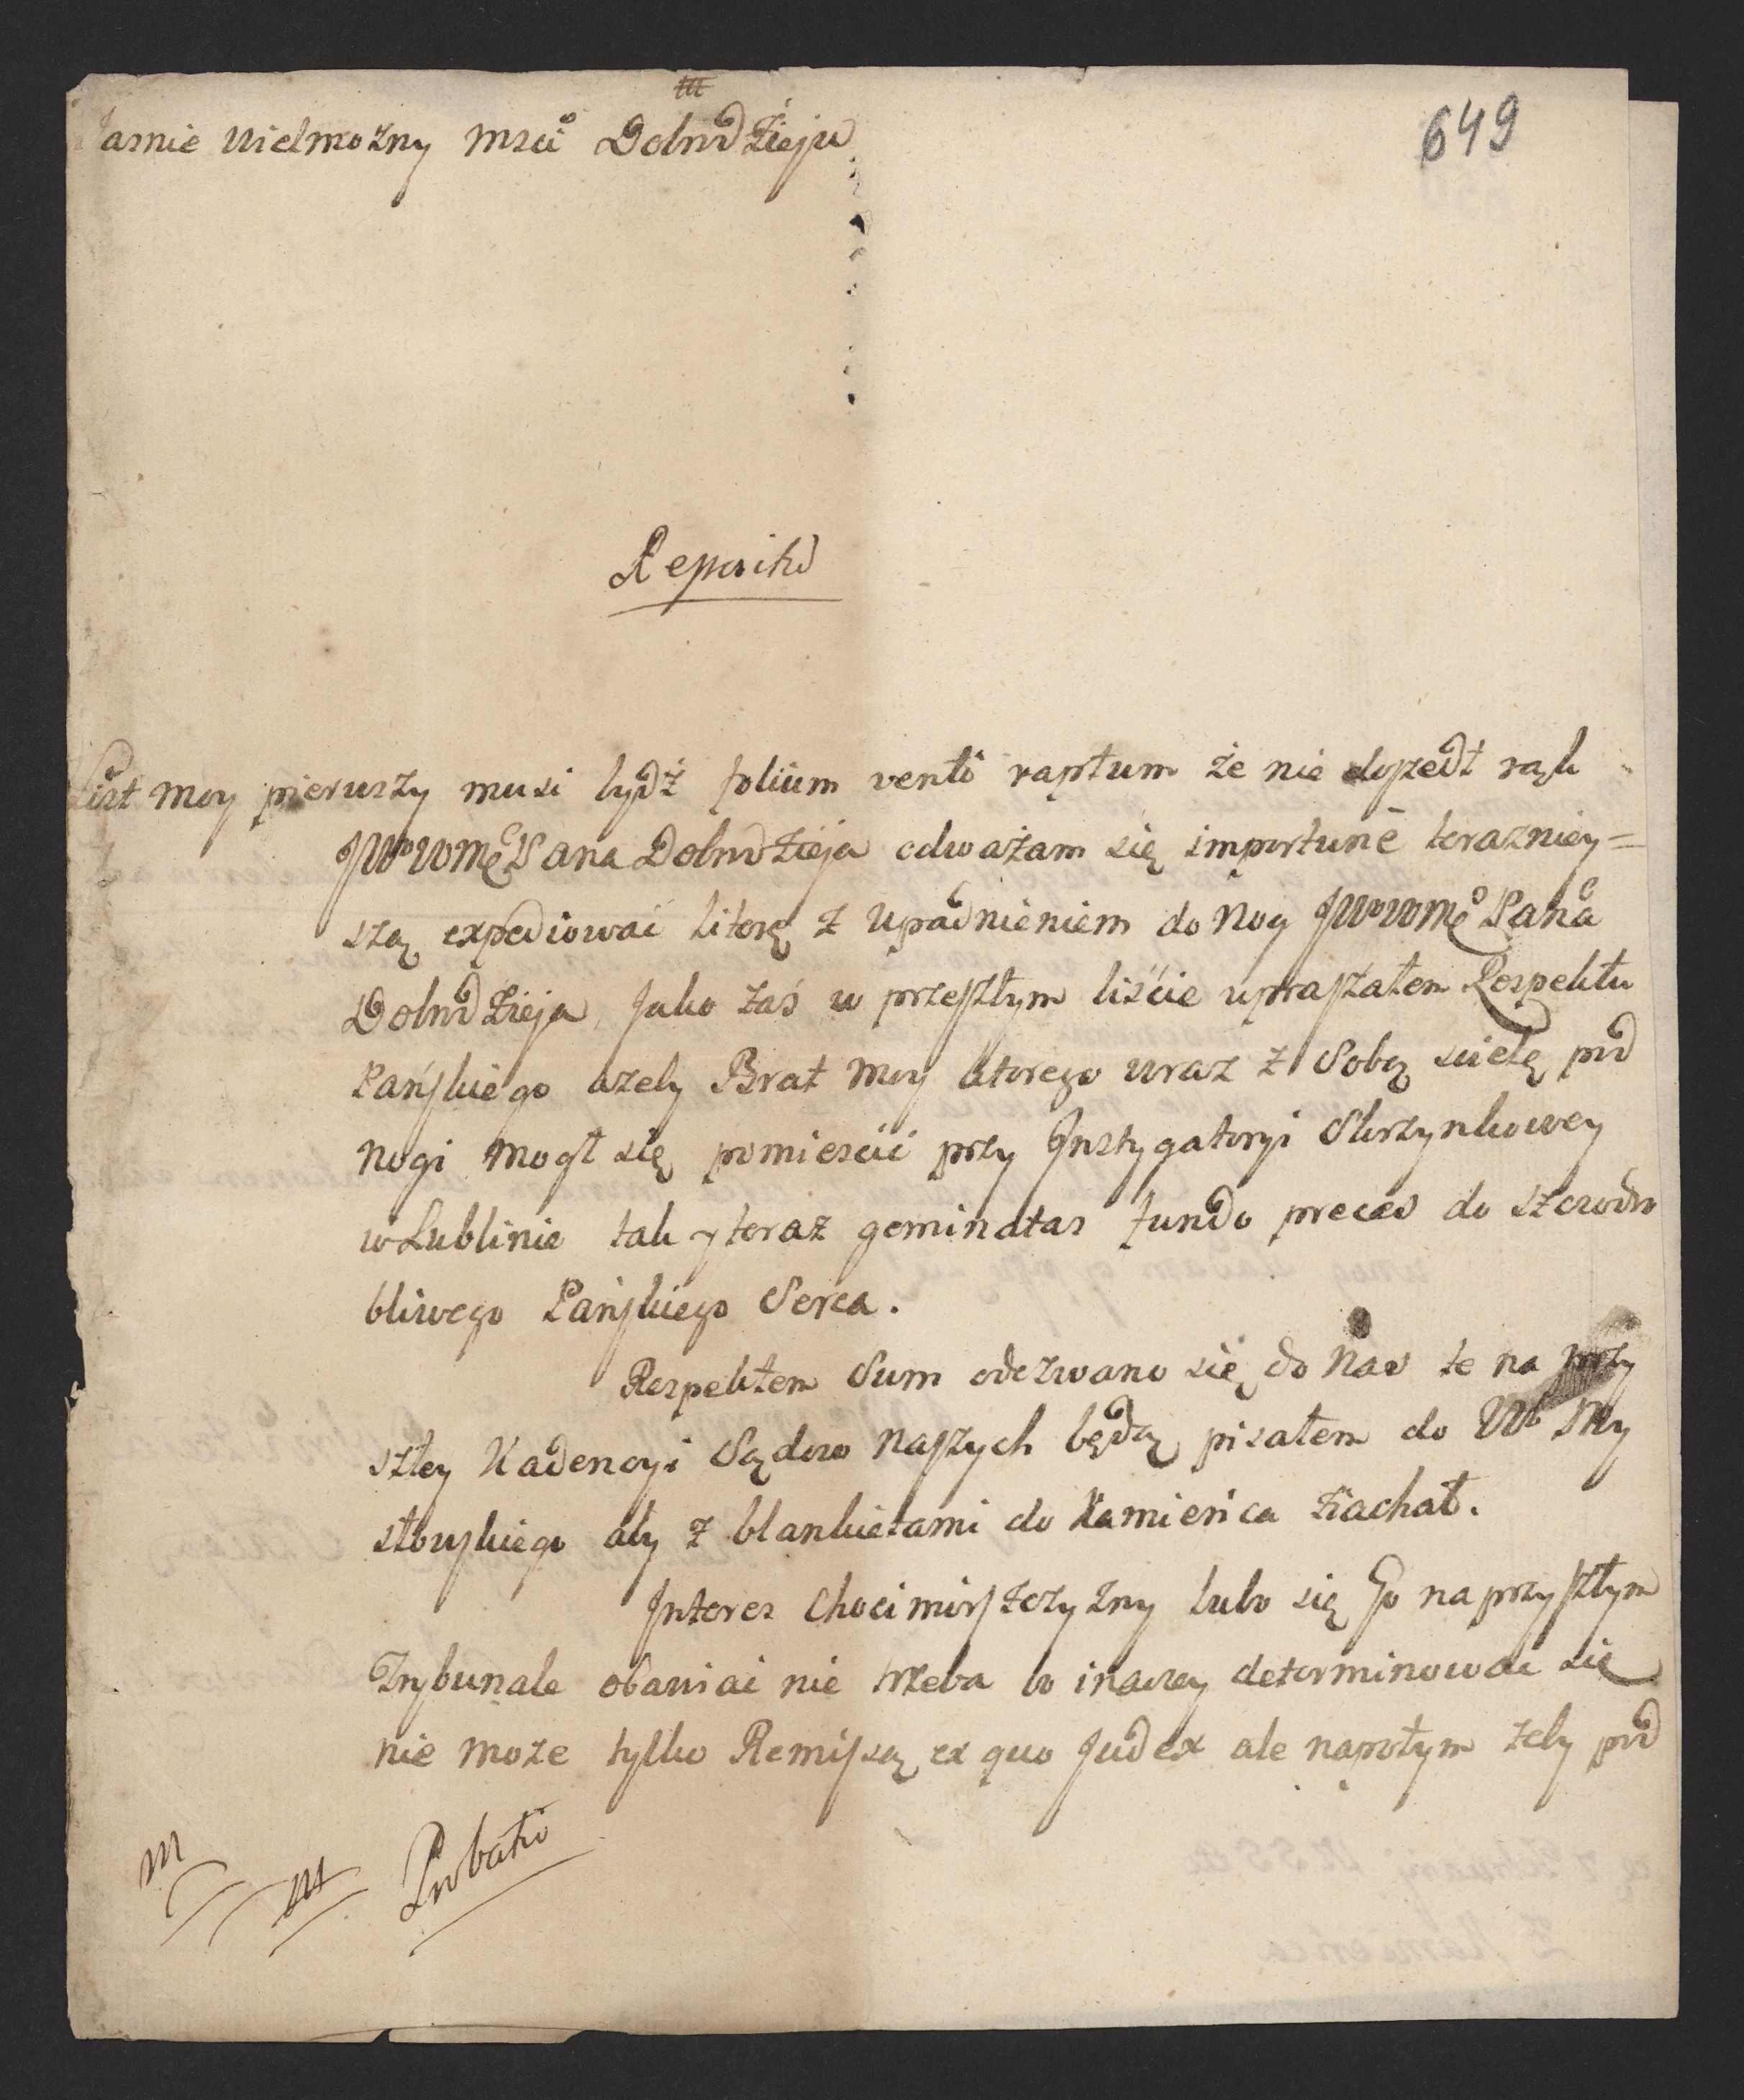 649
Jasnie Wielmozny Msci Dobrodzieju
Reposito
List moy pierwszy musi bydź folium venti raptum że nie doszedł rąk
JWWMę Pana Dobrodzieja odważam się importunè terazniey=
szą expediowac literę z upadnieniem do nog JWWMę Pana
Dobrodzieja, Jako zaś w przeszłym liście upraszałem Respektu
Pańskiego azeby Brat moy ktorego wraz z Sobą scielę pod
nogi mogł się pomiescić przy Instygatoryi Skrzynkowey
w Lublinie tak y teraz geminatas fundo preces do szczodro
bliwego Pańskiego Serca.
Respektem Sum odezwano się do nas te na przy
szłey Kadencyi Sądow naszych będą, pisałem do W My
słowskiego aby z blankietami do Kamieńca ziachał.
Interes Chocimirszczyzny lubo się Go na przyszłym
Trybunale obawiac nie trzeba bo inaczey determinowac się
nie może tylko Remissą ex quo Judex ale napotym zeby pod
Probatio